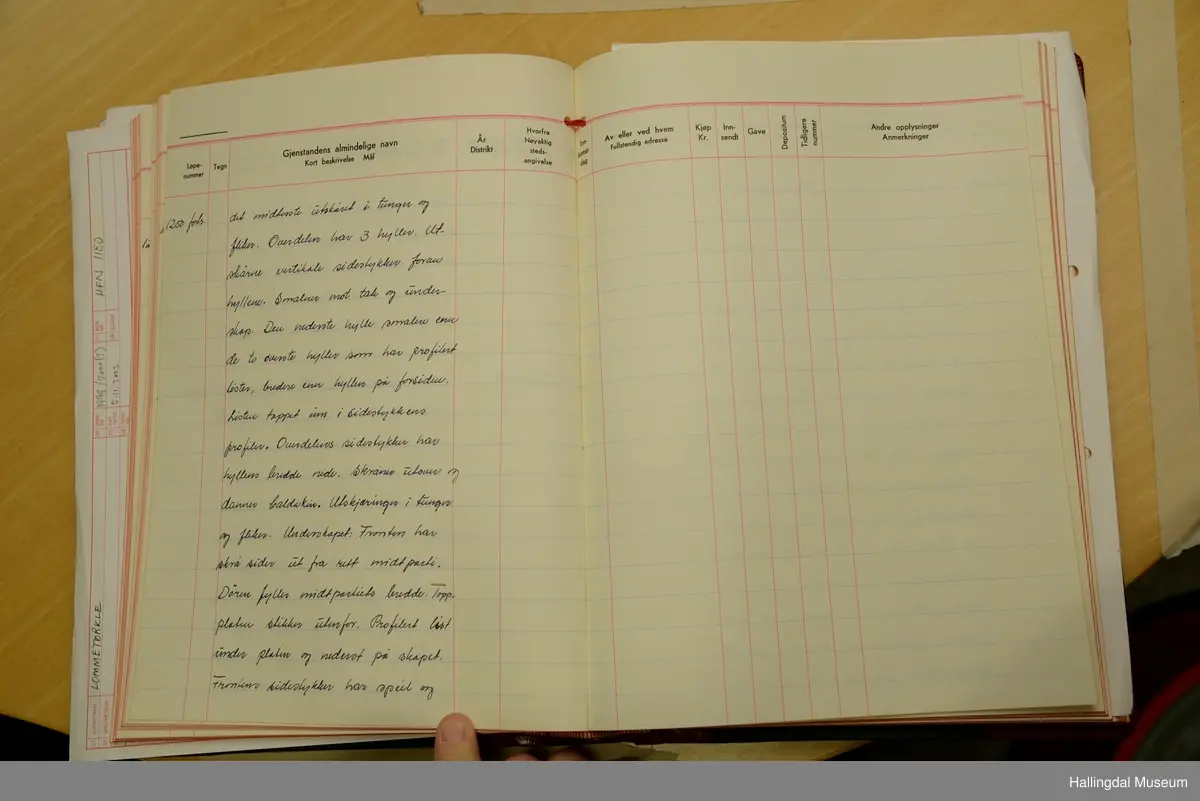 Løpe-
nummer
Tegn
Gjenstandens almindelige navn
Kort beskrivelse Mål
År
Distrikt
Hvorfra
Nøyaktig
steds-
angivelse
Av eller ved hvem
Fullstendig adresse
Kjøp
Kr.
Inn-
sendt
Gave
Depositum
Tidligere
nummer
Andre opplysninger
Anmerkninger
1200 forts.
det midterste utskåret i tunger og
fliker. Overdelen har 3 hyller. Ut-
skårne vertikale sidestykker foran
hyllene. Smalner mot tak og under-
skap. Den nederste hylle smalere enn
de to øverste hyller som har profilert
lister, bredere enn hyllen på forsiden.
Listen tappet inn i sidestykkens
profiler. Overdelens sidestykker har
hyllens bredde nede. Skråner utover og
danner baldakin. Utskjæringer i tunger
og fliker. Underskapet: Fronten har
skrå sider ut fra rett midtparti.
Døren fyller midtpartiets bredde. Topp-
platen stikker utenfor. Profilert list
under platen og nederst på skapet.
Frontens sidestykker har speil og
LOMMETØRKLE
HFN 1180
5.11.2003
Hallingdal Museum